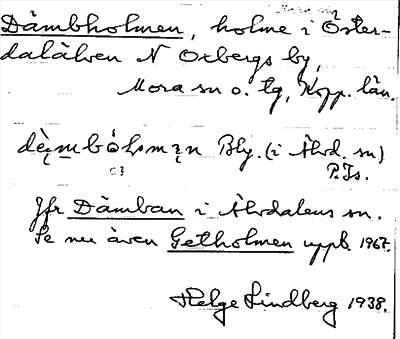 Dåmbholmen, holme i Öster-
dalälven N Oxbergs by,
Mora sn o. tg, Kopp. län.
Bly. (i Älvd. sn)
P.Js.
Jfr Dåmban i Älvdalens sn.
Se nu även Getholmen uppb. 1967.
Helge Lindberg 1938.